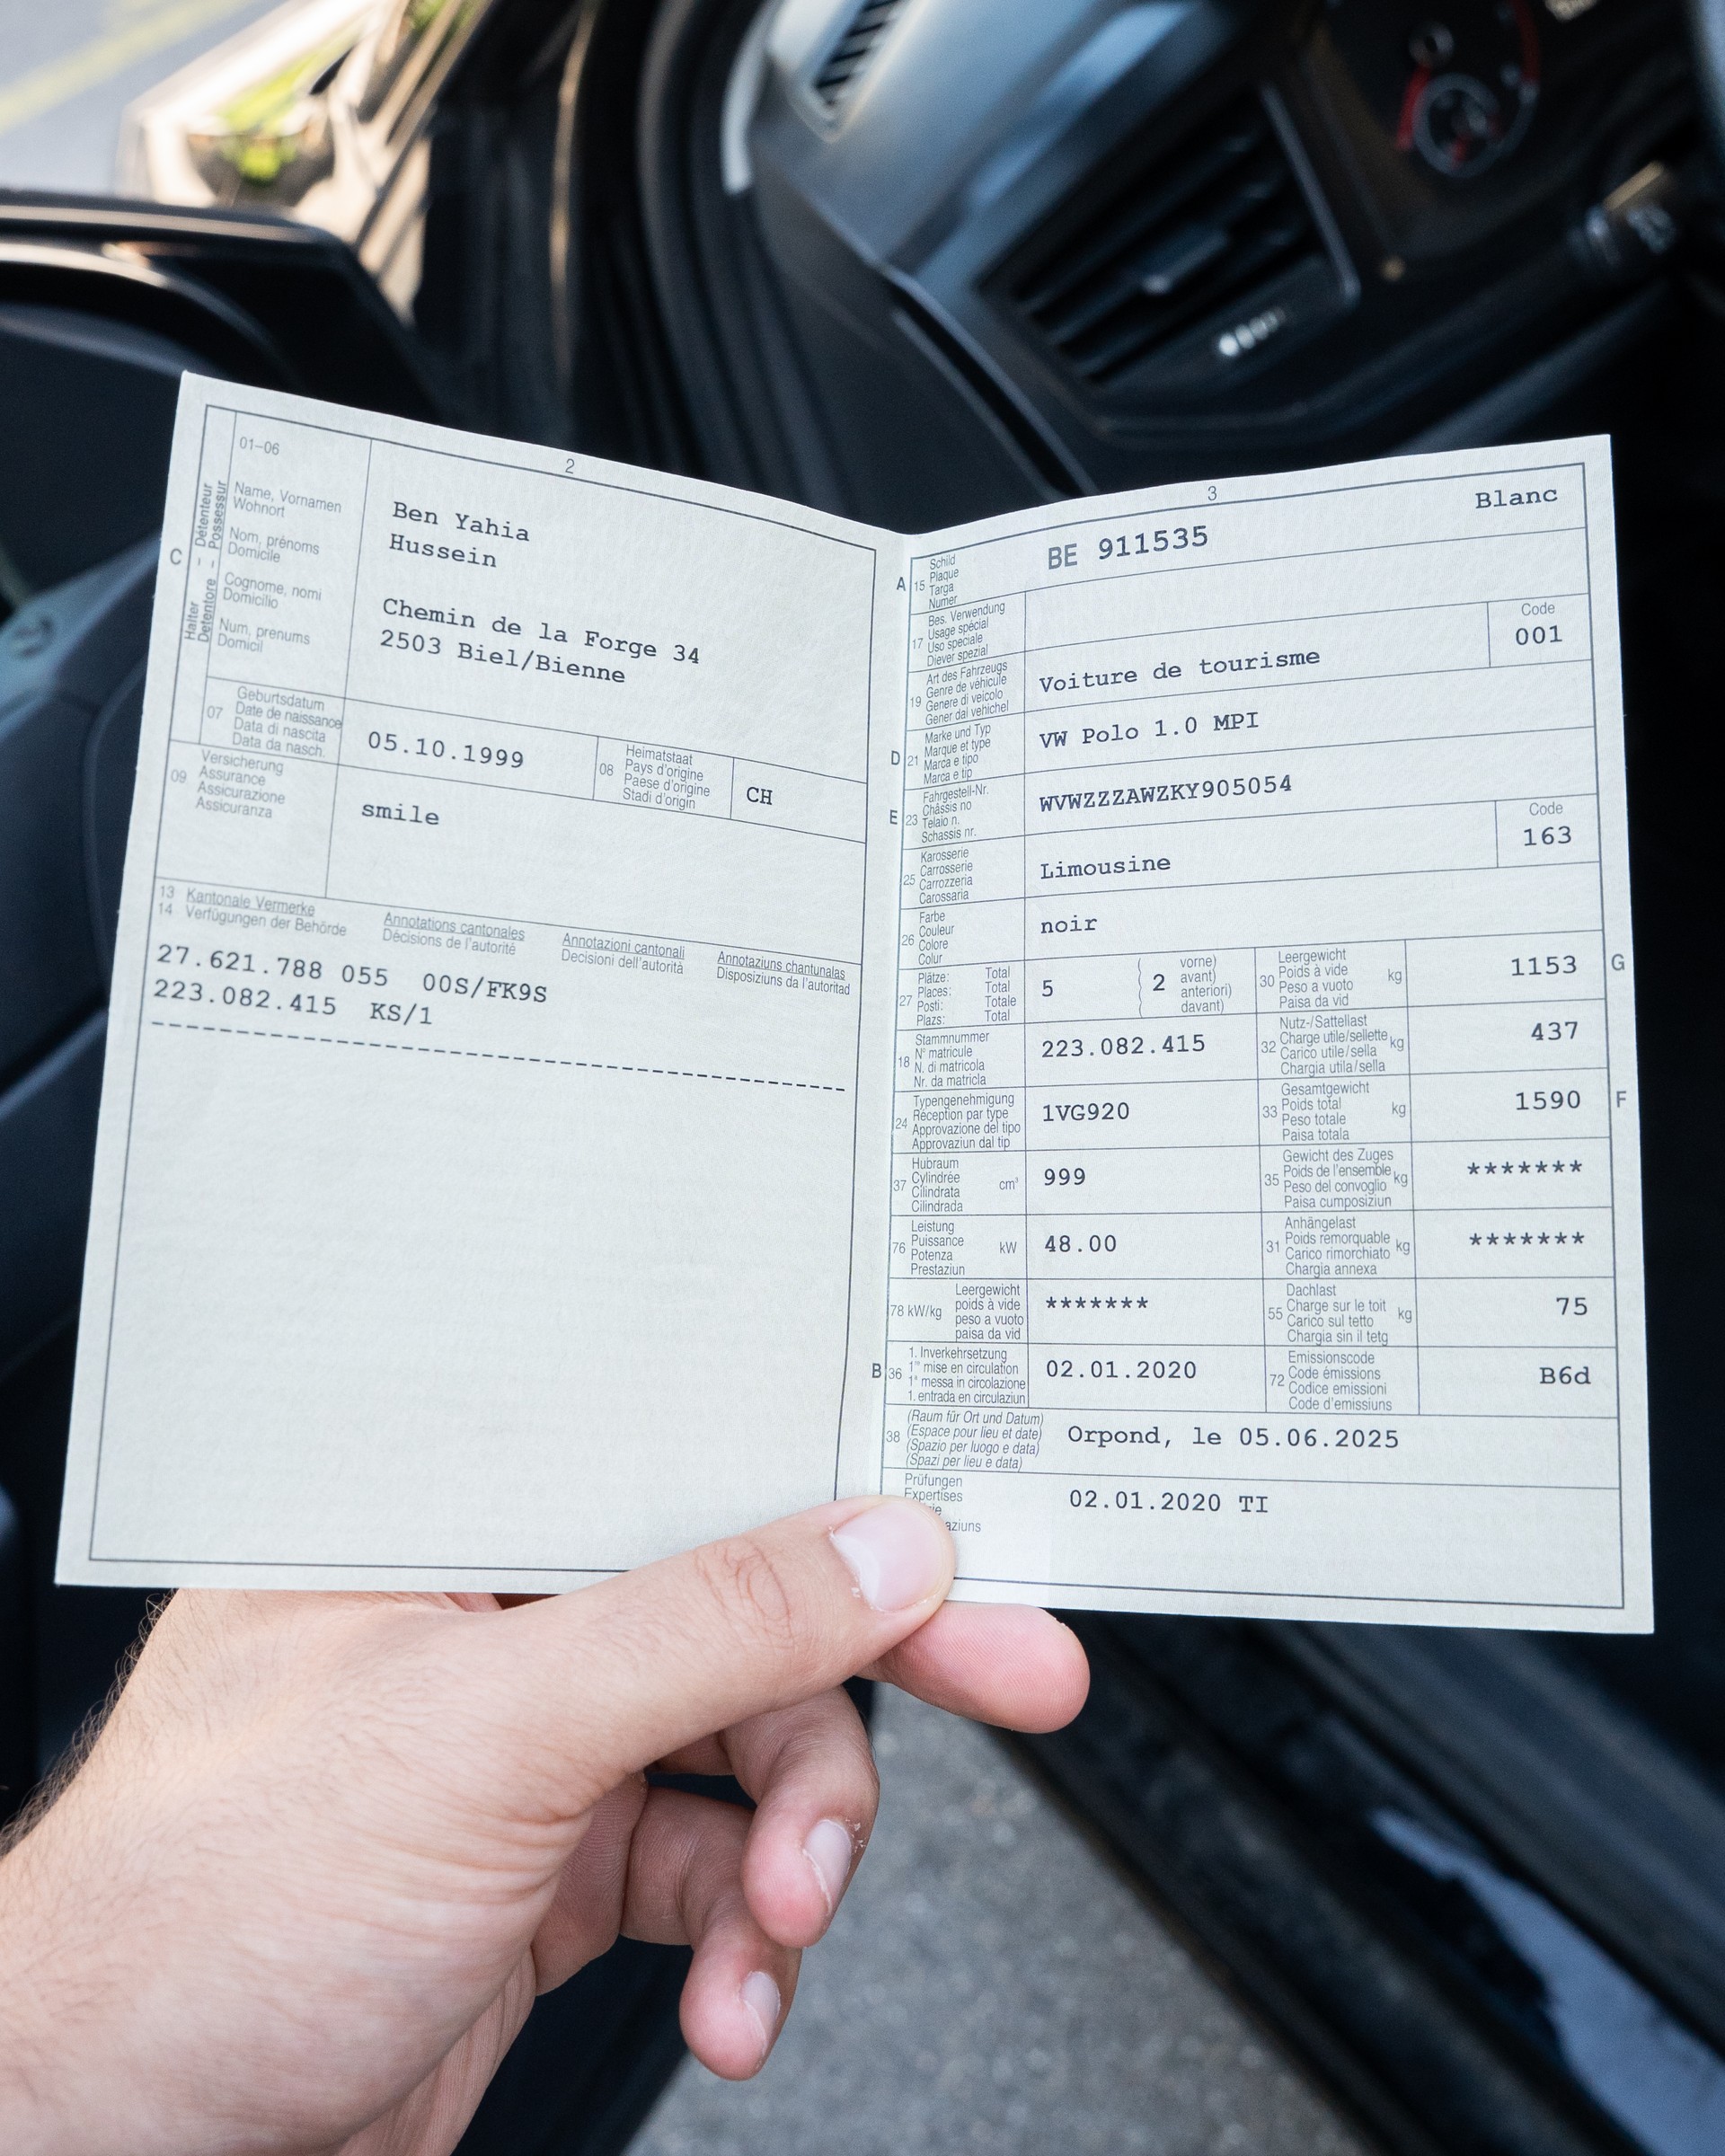 2
01–06
Name, Vornamen
Wohnort
Nom, prénoms
Domicile
Cognome, nomi
Domicilio
Num, prenums
Domicil
C
Halter – Détenteur
Detentore – Possessur
Ben Yahia
Hussein
Chemin de la Forge 34
2503 Biel/Bienne
07
Geburtsdatum
Date de naissance
Data di nascita
Data da nasch.
05.10.1999
08
Heimatstaat
Pays d'origine
Paese d'origine
Stadi d'origin
CH
09
Versicherung
Assurance
Assicurazione
Assicuranza
smile
13 Kantonale Vermerke Annotations cantonales Annotazioni cantonali Annotaziuns chantunalas
14 Verfügungen der Behörde Décisions de l'autorité Decisioni dell'autorità Disposiziuns da l'autoritad
27.621.788 055 00S/FK9S
223.082.415 KS/1
3
Blanc
A 15
Schild
Plaque
Targa
Numer
BE 911535
17
Bes. Verwendung
Usage spécial
Uso speciale
Diever spezial
19
Art des Fahrzeugs
Genre de véhicule
Genere di veicolo
Gener dal vehichel
Voiture de tourisme
Code
001
D 21
Marke und Typ
Marque et type
Marca e tipo
Marca e tip
VW Polo 1.0 MPI
E 23
Fahrgestell-Nr.
Châssis no
Telaio n.
Schassis nr.
WVWZZZAWZKY905054
25
Karosserie
Carrosserie
Carrozzeria
Carossaria
Limousine
Code
163
26
Farbe
Couleur
Colore
Colur
noir
27
Plätze: Total
Places: Total
Posti: Totale
Plazs: Total
5
2
vorne)
avant)
anteriori)
davant)
30
Leergewicht
Poids à vide kg
Peso a vuoto
Paisa da vid
1153
G
18
Stammnummer
N° matricule
N. di matricola
Nr. da matricla
223.082.415
32
Nutz-/Sattellast
Charge utile/sellette kg
Carico utile/sella
Chargia utila/sella
437
24
Typengenehmigung
Réception par type
Approvazione del tipo
Approvaziun dal tip
1VG920
33
Gesamtgewicht
Poids total kg
Peso totale
Paisa totala
1590
F
37
Hubraum
Cylindrée
Cilindrata cm³
Cilindrada
999
35
Gewicht des Zuges
Poids de l'ensemble kg
Peso del convoglio
Paisa cumposiziun
*******
76
Leistung
Puissance kW
Potenza
Prestaziun
48.00
31
Anhängelast
Poids remorquable kg
Carico rimorchiato
Chargia annexa
*******
78 kW/kg
Leergewicht
poids à vide
peso a vuoto
paisa da vid
*******
55
Dachlast
Charge sur le toit kg
Carico sul tetto
Chargia sin il tetg
75
B 36
1. Inverkehrsetzung
1re mise en circulation
1a messa in circolazione
1. entrada en circulaziun
02.01.2020
72
Emissionscode
Code émissions
Codice emissioni
Code d'emissiuns
B6d
38
(Raum für Ort und Datum)
(Espace pour lieu et date)
(Spazio per luogo e data)
(Spazi per lieu e data)
Orpond, le 05.06.2025
Prüfungen
Expertises
02.01.2020 TI